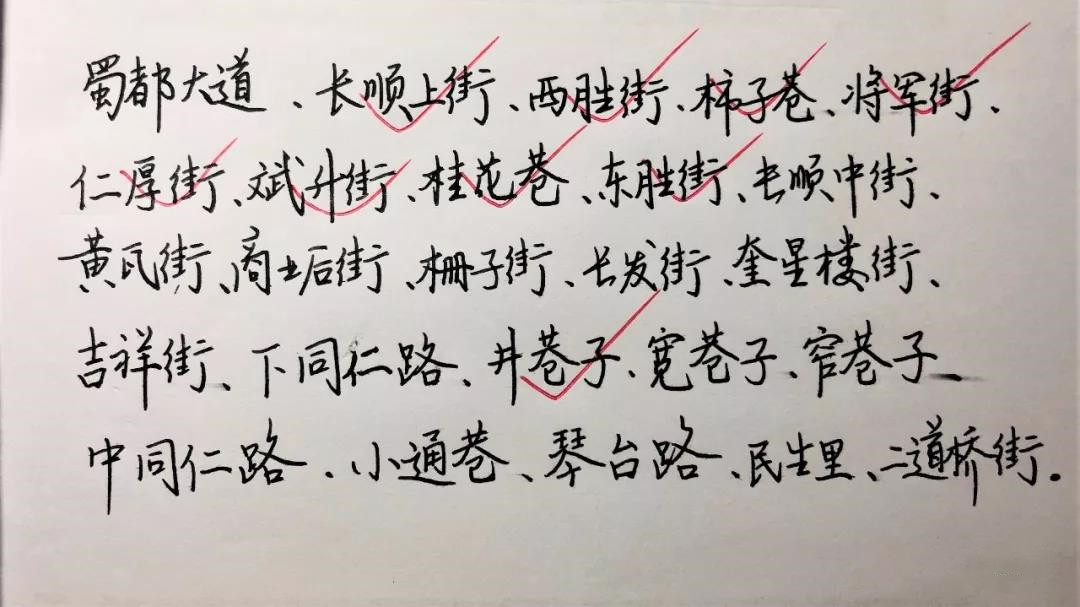 蜀都大道、长顺上街、西胜街、柿子巷、将军街、
仁厚街、斌升街、桂花巷、东胜街、长顺中街、
黄瓦街、商业后街、栅子街、长发街、奎星楼街、
吉祥街、下同仁路、井巷子、宽巷子、窄巷子、
中同仁路、小通巷、琴台路、民生里、二道桥街.